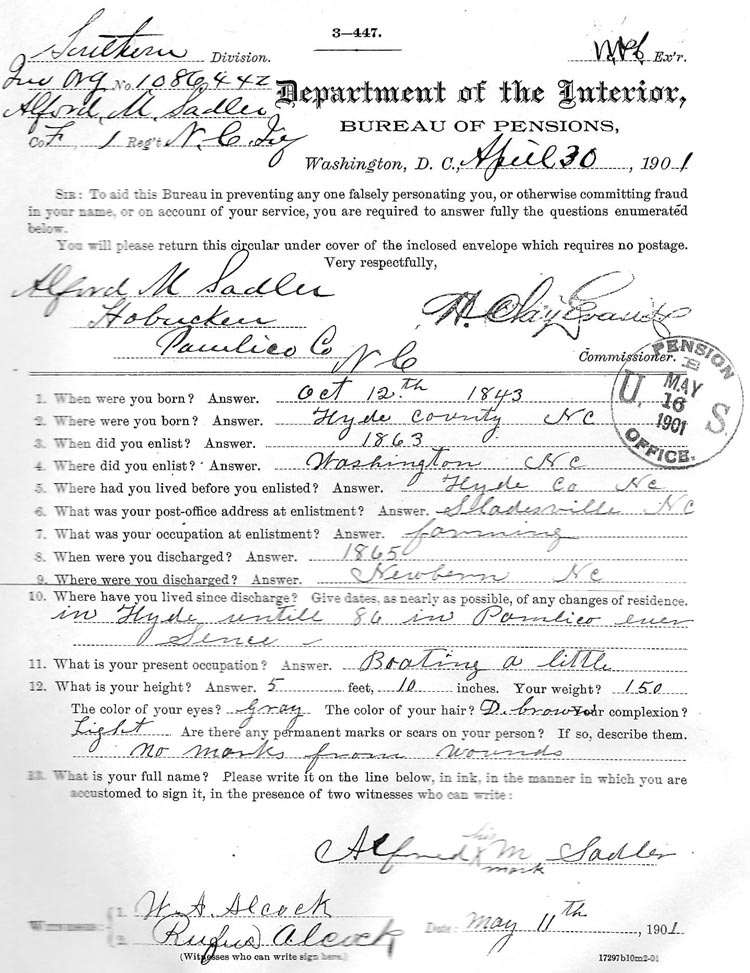 3—447.
Southern Division.
Ex'r.
Inv Org No. 1086442
Alford M Sadler
Department of the Interior,
Co F 1 Reg't N. C. Inf
BUREAU OF PENSIONS,
Washington, D. C., April 30, 1901
SIR: To aid this Bureau in preventing any one falsely personating you, or otherwise committing fraud
in your name, or on account of your service, you are required to answer fully the questions enumerated
below.
You will please return this circular under cover of the inclosed envelope which requires no postage.
Very respectfully,
Alford M Sadler
Hobucken
H. Clay Evans
Pamlico Co
N C
Commissioner.
PENSION
U. S.
MAY
16
1901
OFFICE.
1. When were you born? Answer. Oct 12th 1843
2. Where were you born? Answer. Hyde County NC
3. When did you enlist? Answer. 1863
4. Where did you enlist? Answer. Washington NC
5. Where had you lived before you enlisted? Answer. Hyde Co NC
6. What was your post-office address at enlistment? Answer. Sladesville NC
7. What was your occupation at enlistment? Answer. farming
8. When were you discharged? Answer. 1865
9. Where were you discharged? Answer. Newbern NC
10. Where have you lived since discharge? Give dates, as nearly as possible, of any changes of residence.
in Hyde untill 86 in Pamlico ever
Sence
11. What is your present occupation? Answer. Boating a little
12. What is your height? Answer. 5 feet, 10 inches. Your weight? 150
The color of your eyes? Gray The color of your hair? D. brown Your complexion?
Light Are there any permanent marks or scars on your person? If so, describe them.
no marks from wounds
13. What is your full name? Please write it on the line below, in ink, in the manner in which you are
accustomed to sign it, in the presence of two witnesses who can write:
his
Alfred X M, Sadler
mark
WITNESSES:
1. W. A. Alcock
2. Rufus Alcock
Date: May 11th, 1901.
(Witnesses who can write sign here.)
17297b10m2-01